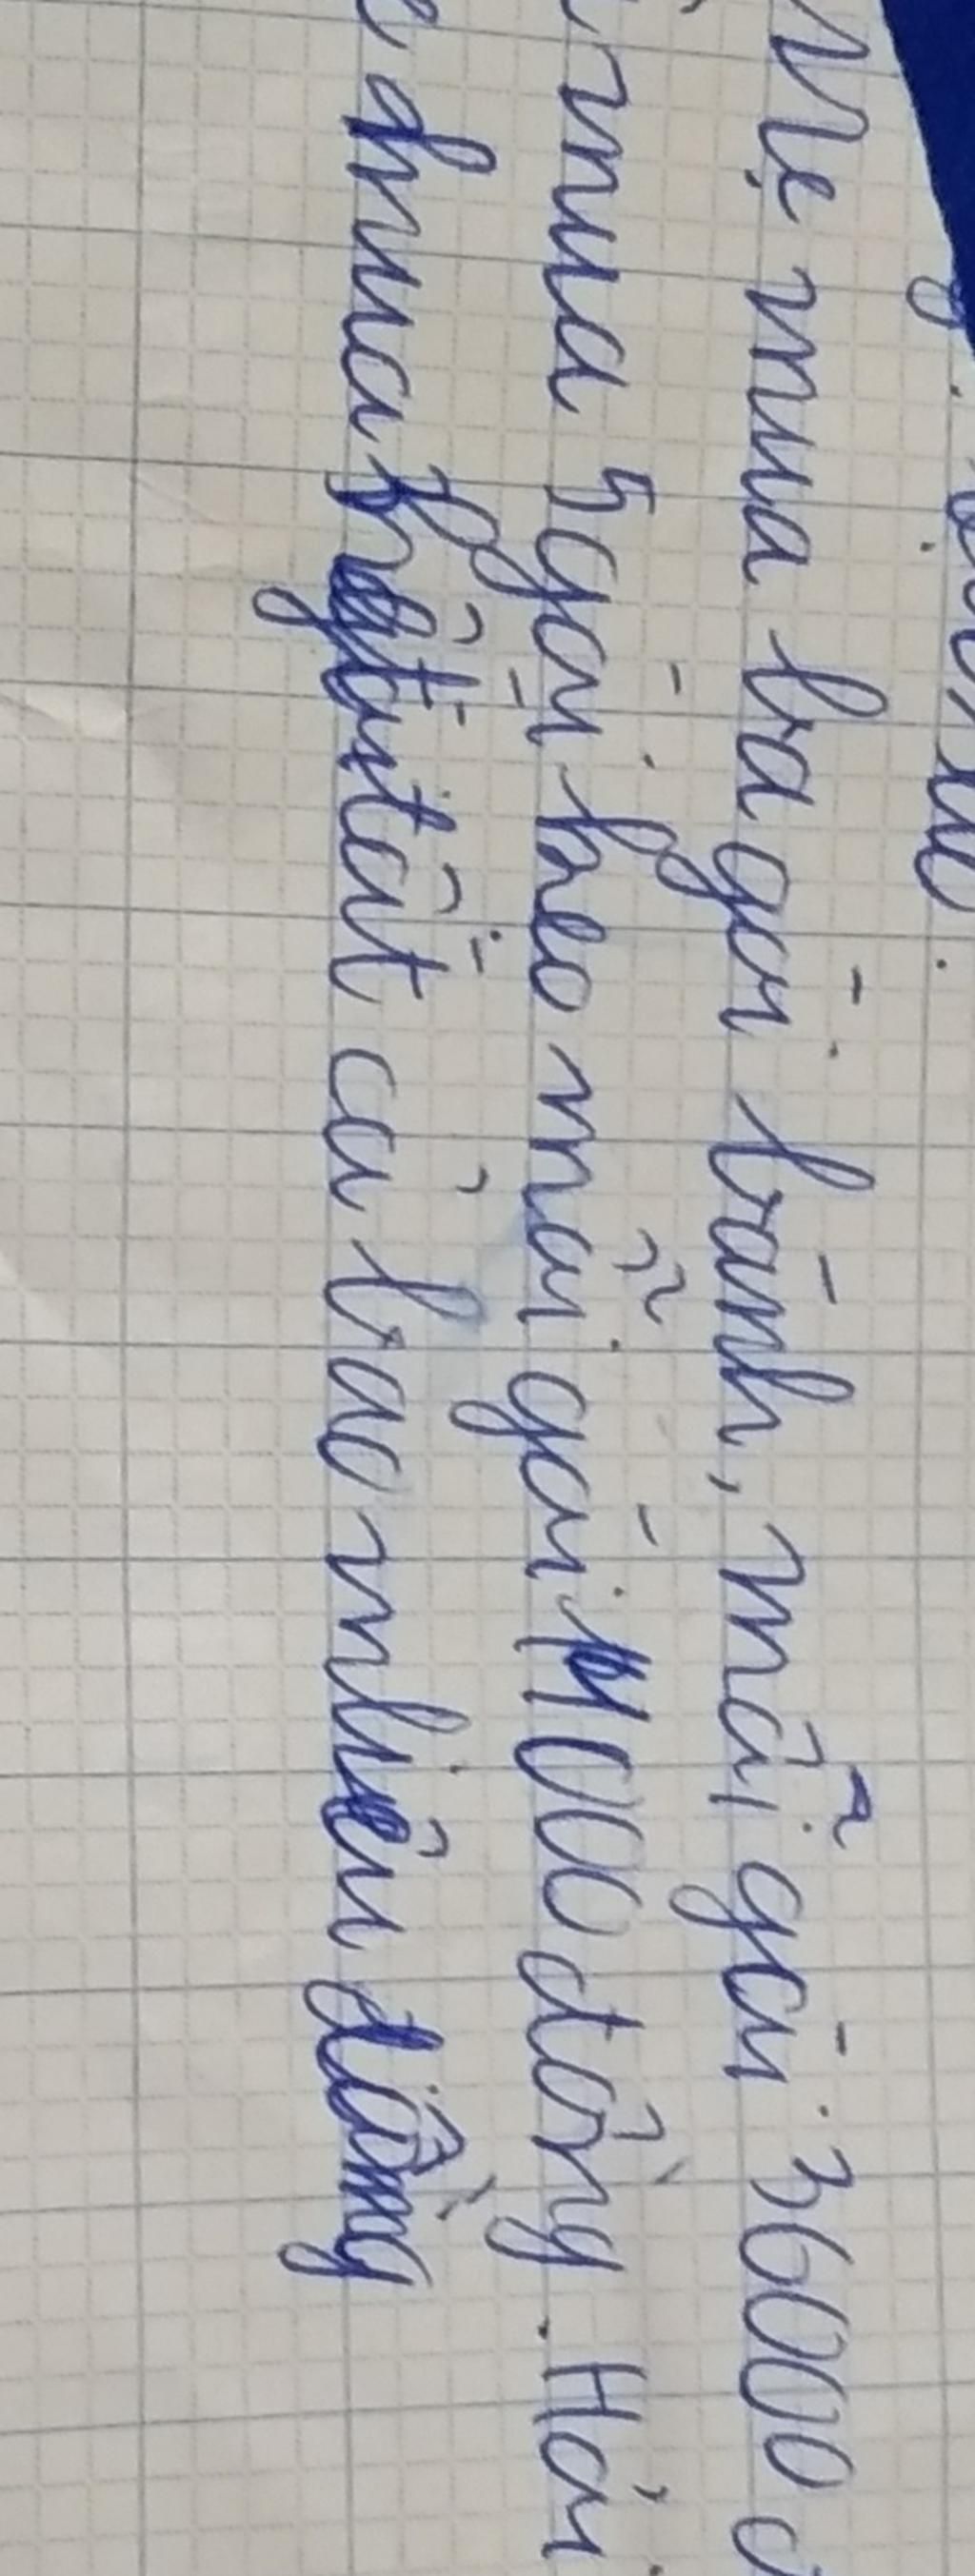 Mẹ mua ba gói bánh, mỗi gói 3600 đ
mua 5 gói kẹo mỗi gói 4000 đồng. Hỏi
mua hết tất cả bao nhiêu đồng